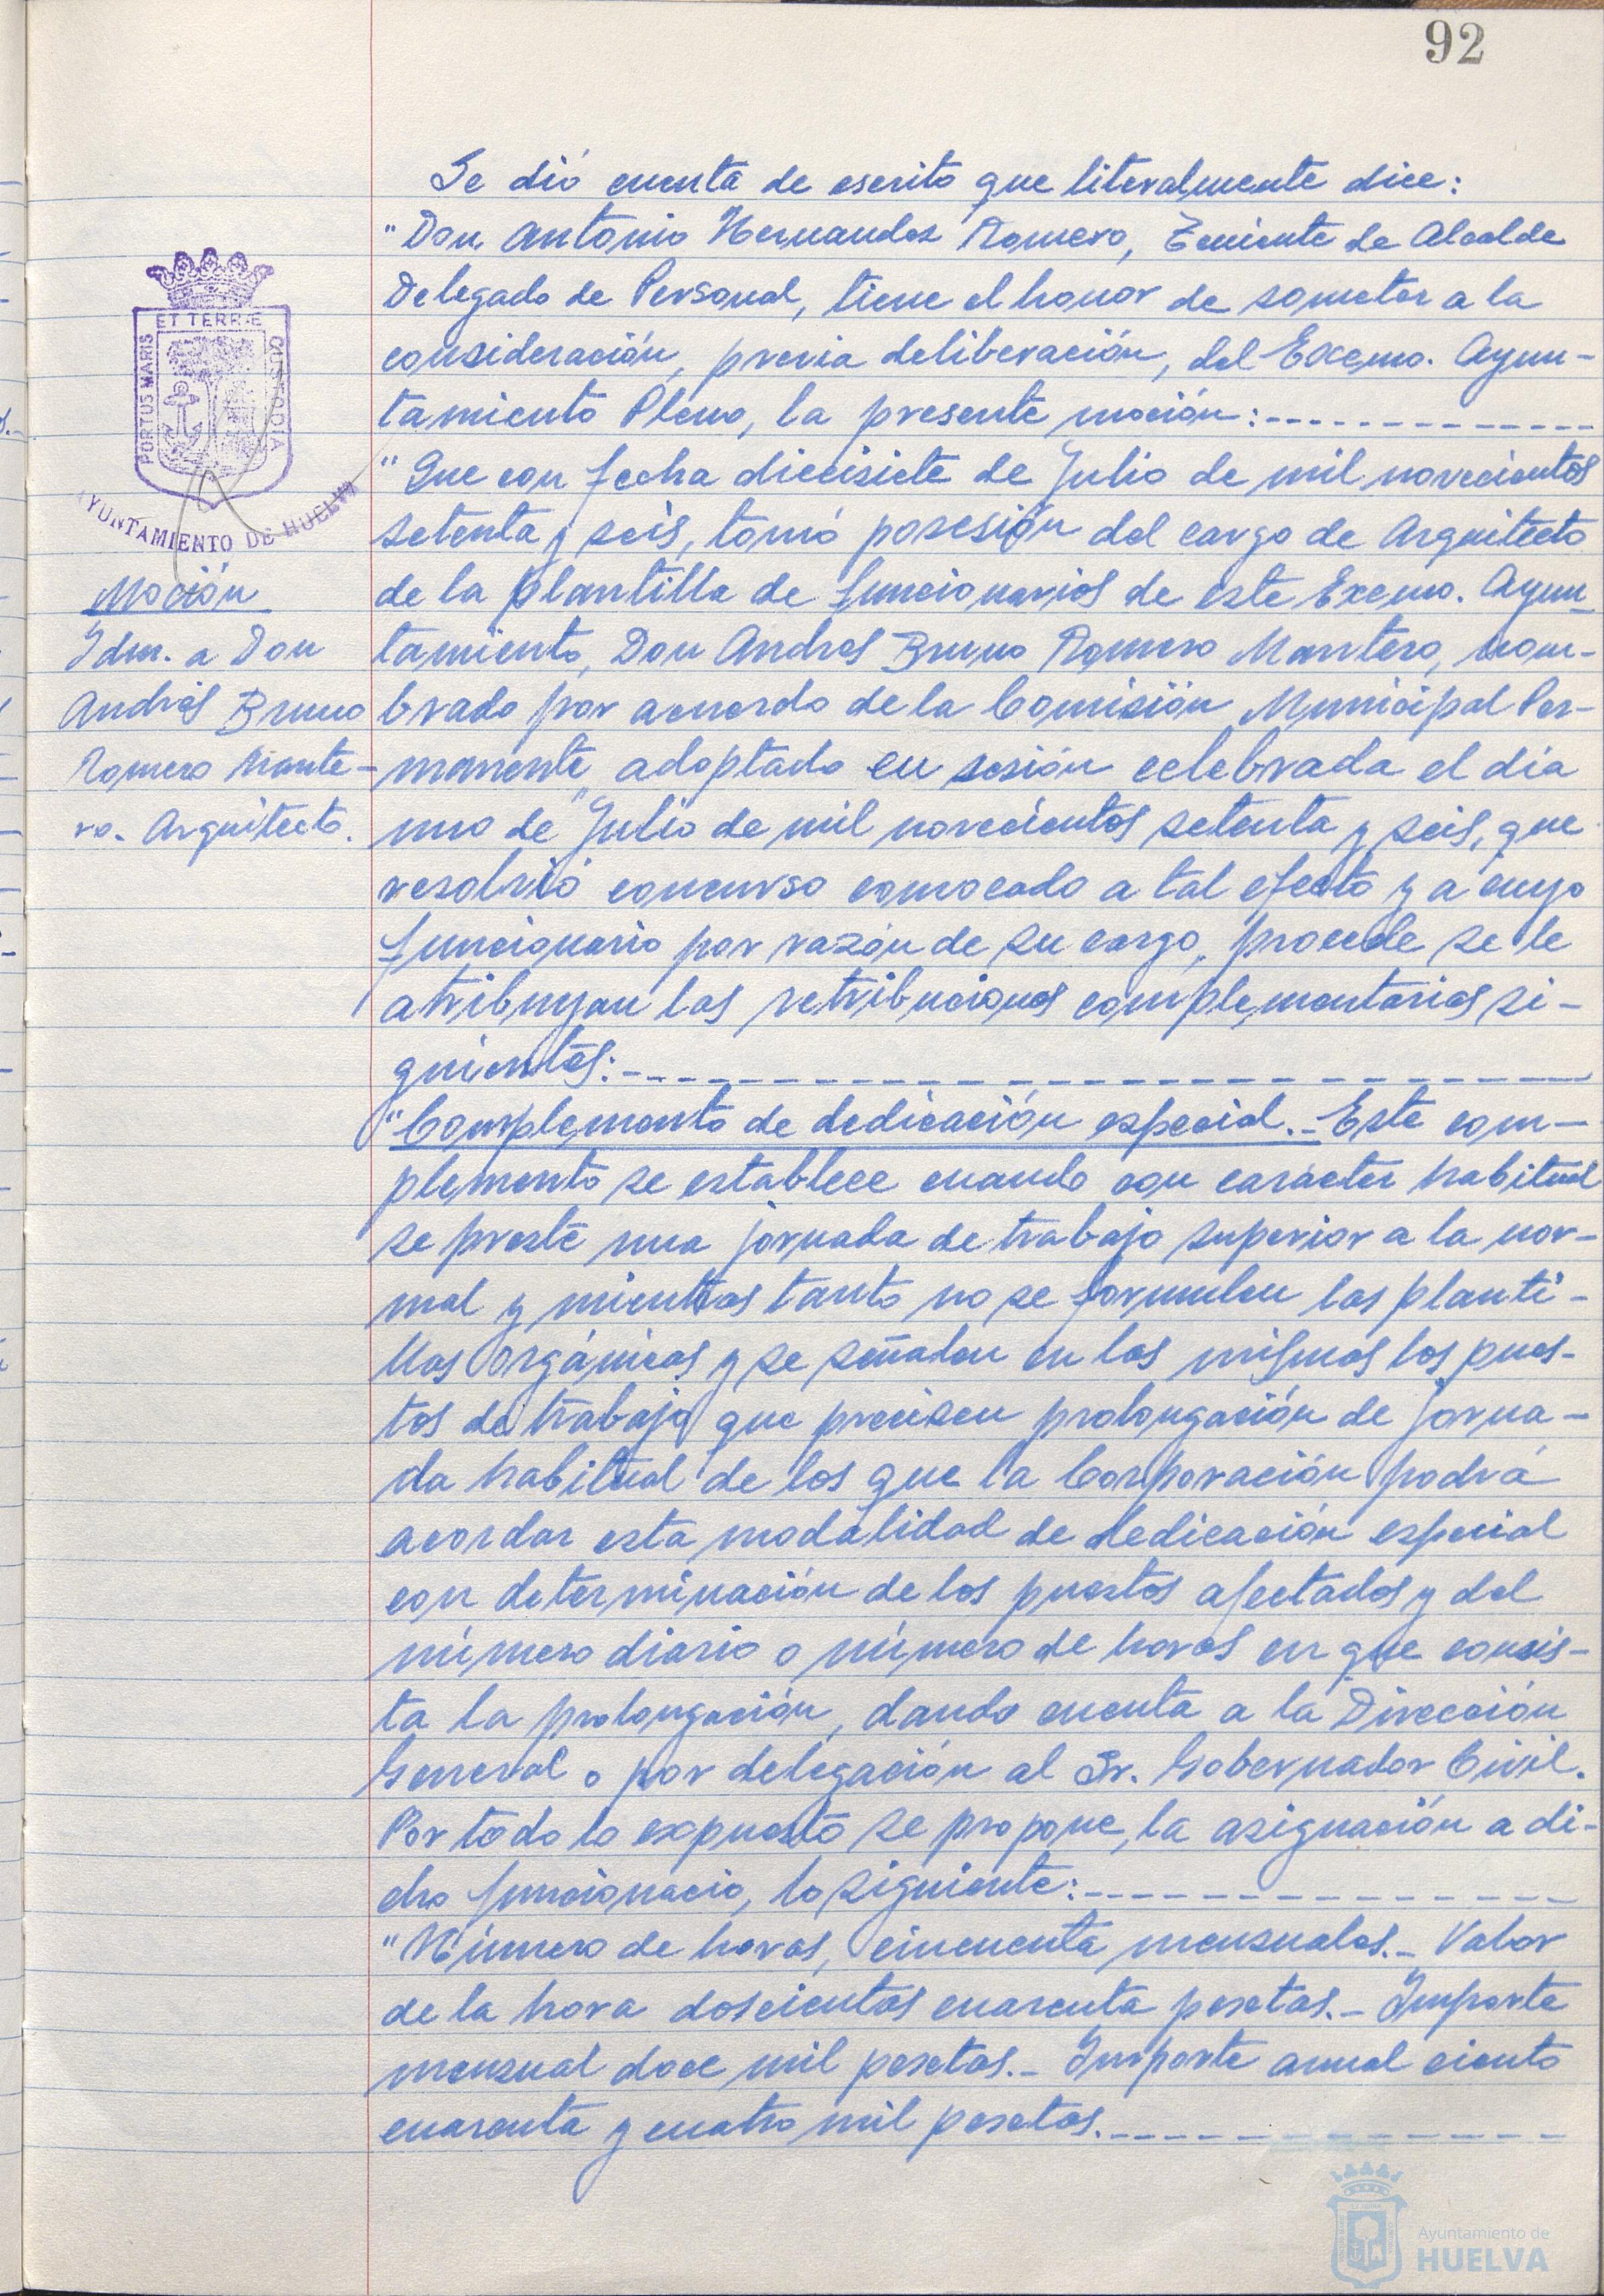 92
Se dió cuenta de escrito que literalmente dice:
"Don Antonio Hernandez Romero, Teniente de Alcalde
Delegado de Personal, tiene el honor de someter a la
consideración, previa deliberación, del Excmo. Ayun-
tamiento Pleno, la presente moción:
"Que con fecha diecisiete de Julio de mil novecientos
setenta y seis, tomó posesión del cargo de Arquitecto
de la plantilla de funcionarios de este Excmo. Ayun-
tamiento, Don Andres Bruno Romero Mantero, nom-
brado por acuerdo de la Comisión Municipal Per-
manente adoptado en sesión celebrada el dia
uno de Julio de mil novecientos setenta y seis, que
resolvió concurso convocado a tal efecto y a cuyo
funcionario por razón de su cargo, procede se le
atribuyan las retribuciones complementarias si-
guientes:
"Complemento de dedicación especial.- Este com-
plemento se establece cuando con carácter habitual
se preste una jornada de trabajo superior a la nor-
mal y mientras tanto no se formulen las planti-
llas orgánicas y se señalen en las mismas los pues-
tos de trabajo que precisen prolongación de jorna-
da habitual de los que la Corporación podrá
acordar esta modalidad de dedicación especial
con determinación de los puestos afectados y del
número diario o número de horas en que consis-
ta la prolongación, dando cuenta a la Dirección
General o por delegación al Sr. Gobernador Civil.
Por todo lo expuesto se propone, la asignación a di-
cho funcionario, lo siguiente:
"Número de horas, cincuenta mensuales.- Valor
de la hora doscientas cuarenta pesetas.- Importe
mensual doce mil pesetas.- Importe anual ciento
cuarenta y cuatro mil pesetas.
PORTUS MARIS
ET TERRÆ
CUSTODIA
AYUNTAMIENTO DE HUELVA
Moción
Idm. a Don
Andrés Bruno
Romero Mante-
ro. Arquitecto.
Ayuntamiento de
HUELVA